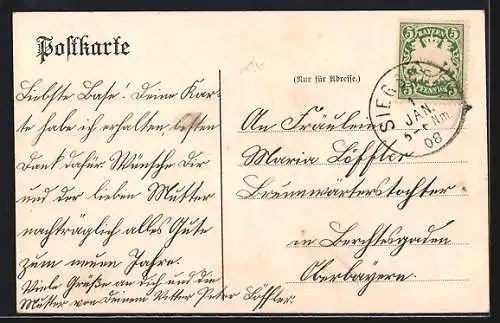 Postkarte
BAYERN
5 5
PFENNIG
(Nur für Adresse.)
SIEG
JAN.
Nm
08
Liebste Base! Deine Kar-
te habe ich erhalten besten
Dank dafür. Wünsche Dir
und der lieben Mutter
nachträglich alles Gute
zum neuen Jahre.
Viele Grüße an dich und die
Mutter von Deinem Vetter Peter Löffler.
An Fräulein
Maria Löffler
Brunnwärterstochter
in Berchtesgaden
Oberbayern.